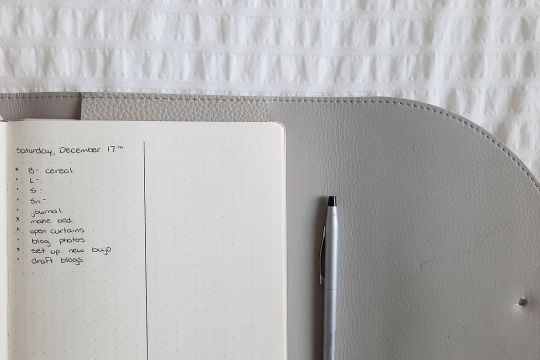 Saturday, December 17th
x B - cereal
· L -
· S -
· Sn -
· journal
x make bed
x open curtains
· blog photos
x set up new bujo
· draft blogs